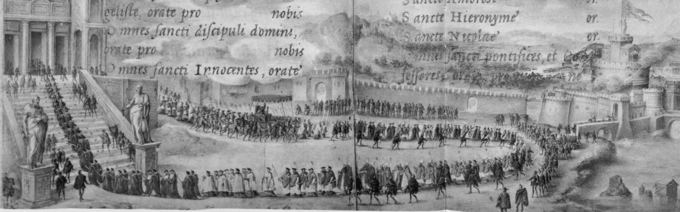 geliste, orate pro nobis
Omnes sancti discipuli domini,
orate pro nobis
Omnes sancti Innocentes, orate
Sancte Hieronyme or.
Sancte Nicolae or.
Omnes sancte pontifices, et
fessores orate